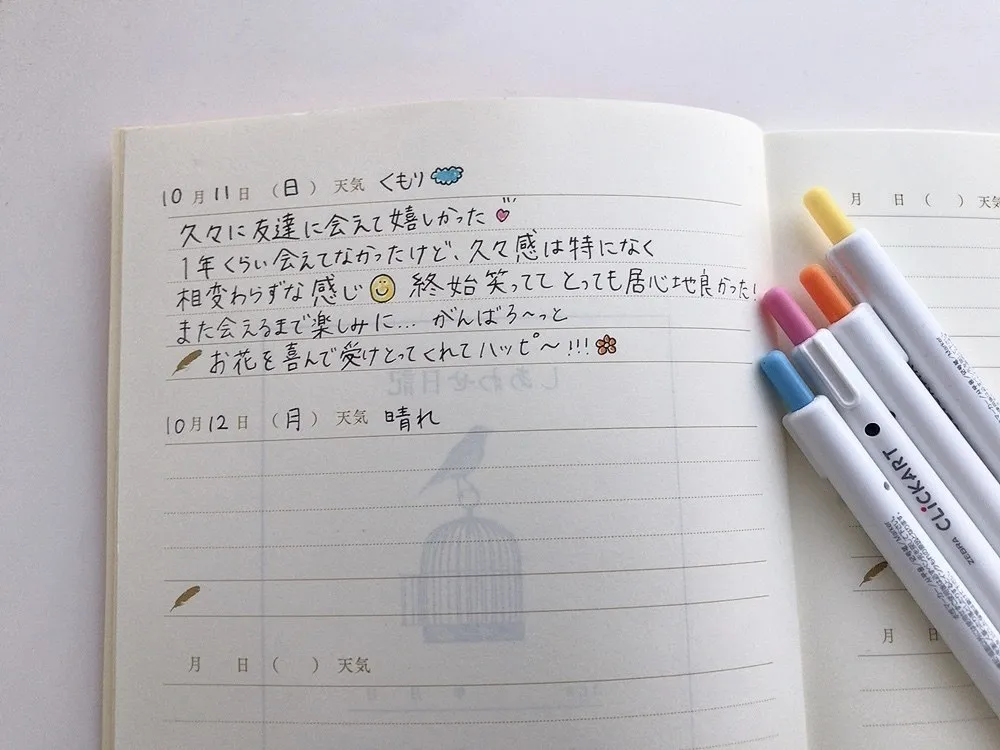 10月11日（日）天気 くもり
久々に友達に会えて嬉しかった
1年くらい会えてなかったけど、久々感は特になく
相変わらずな感じ 終始笑ってて とっても居心地良かった!
また会えるまで楽しみに… がんばろ〜っと
お花を喜んで受けとってくれてハッピ〜!!!
しあわせ日記
10月12日（月）天気 晴れ
月 日（ ）天気
月 日（ ）天気
月 日
ZEBRA CLiCKART